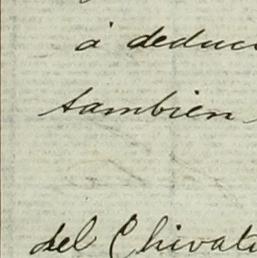 á deduc
tambien
del Chivat